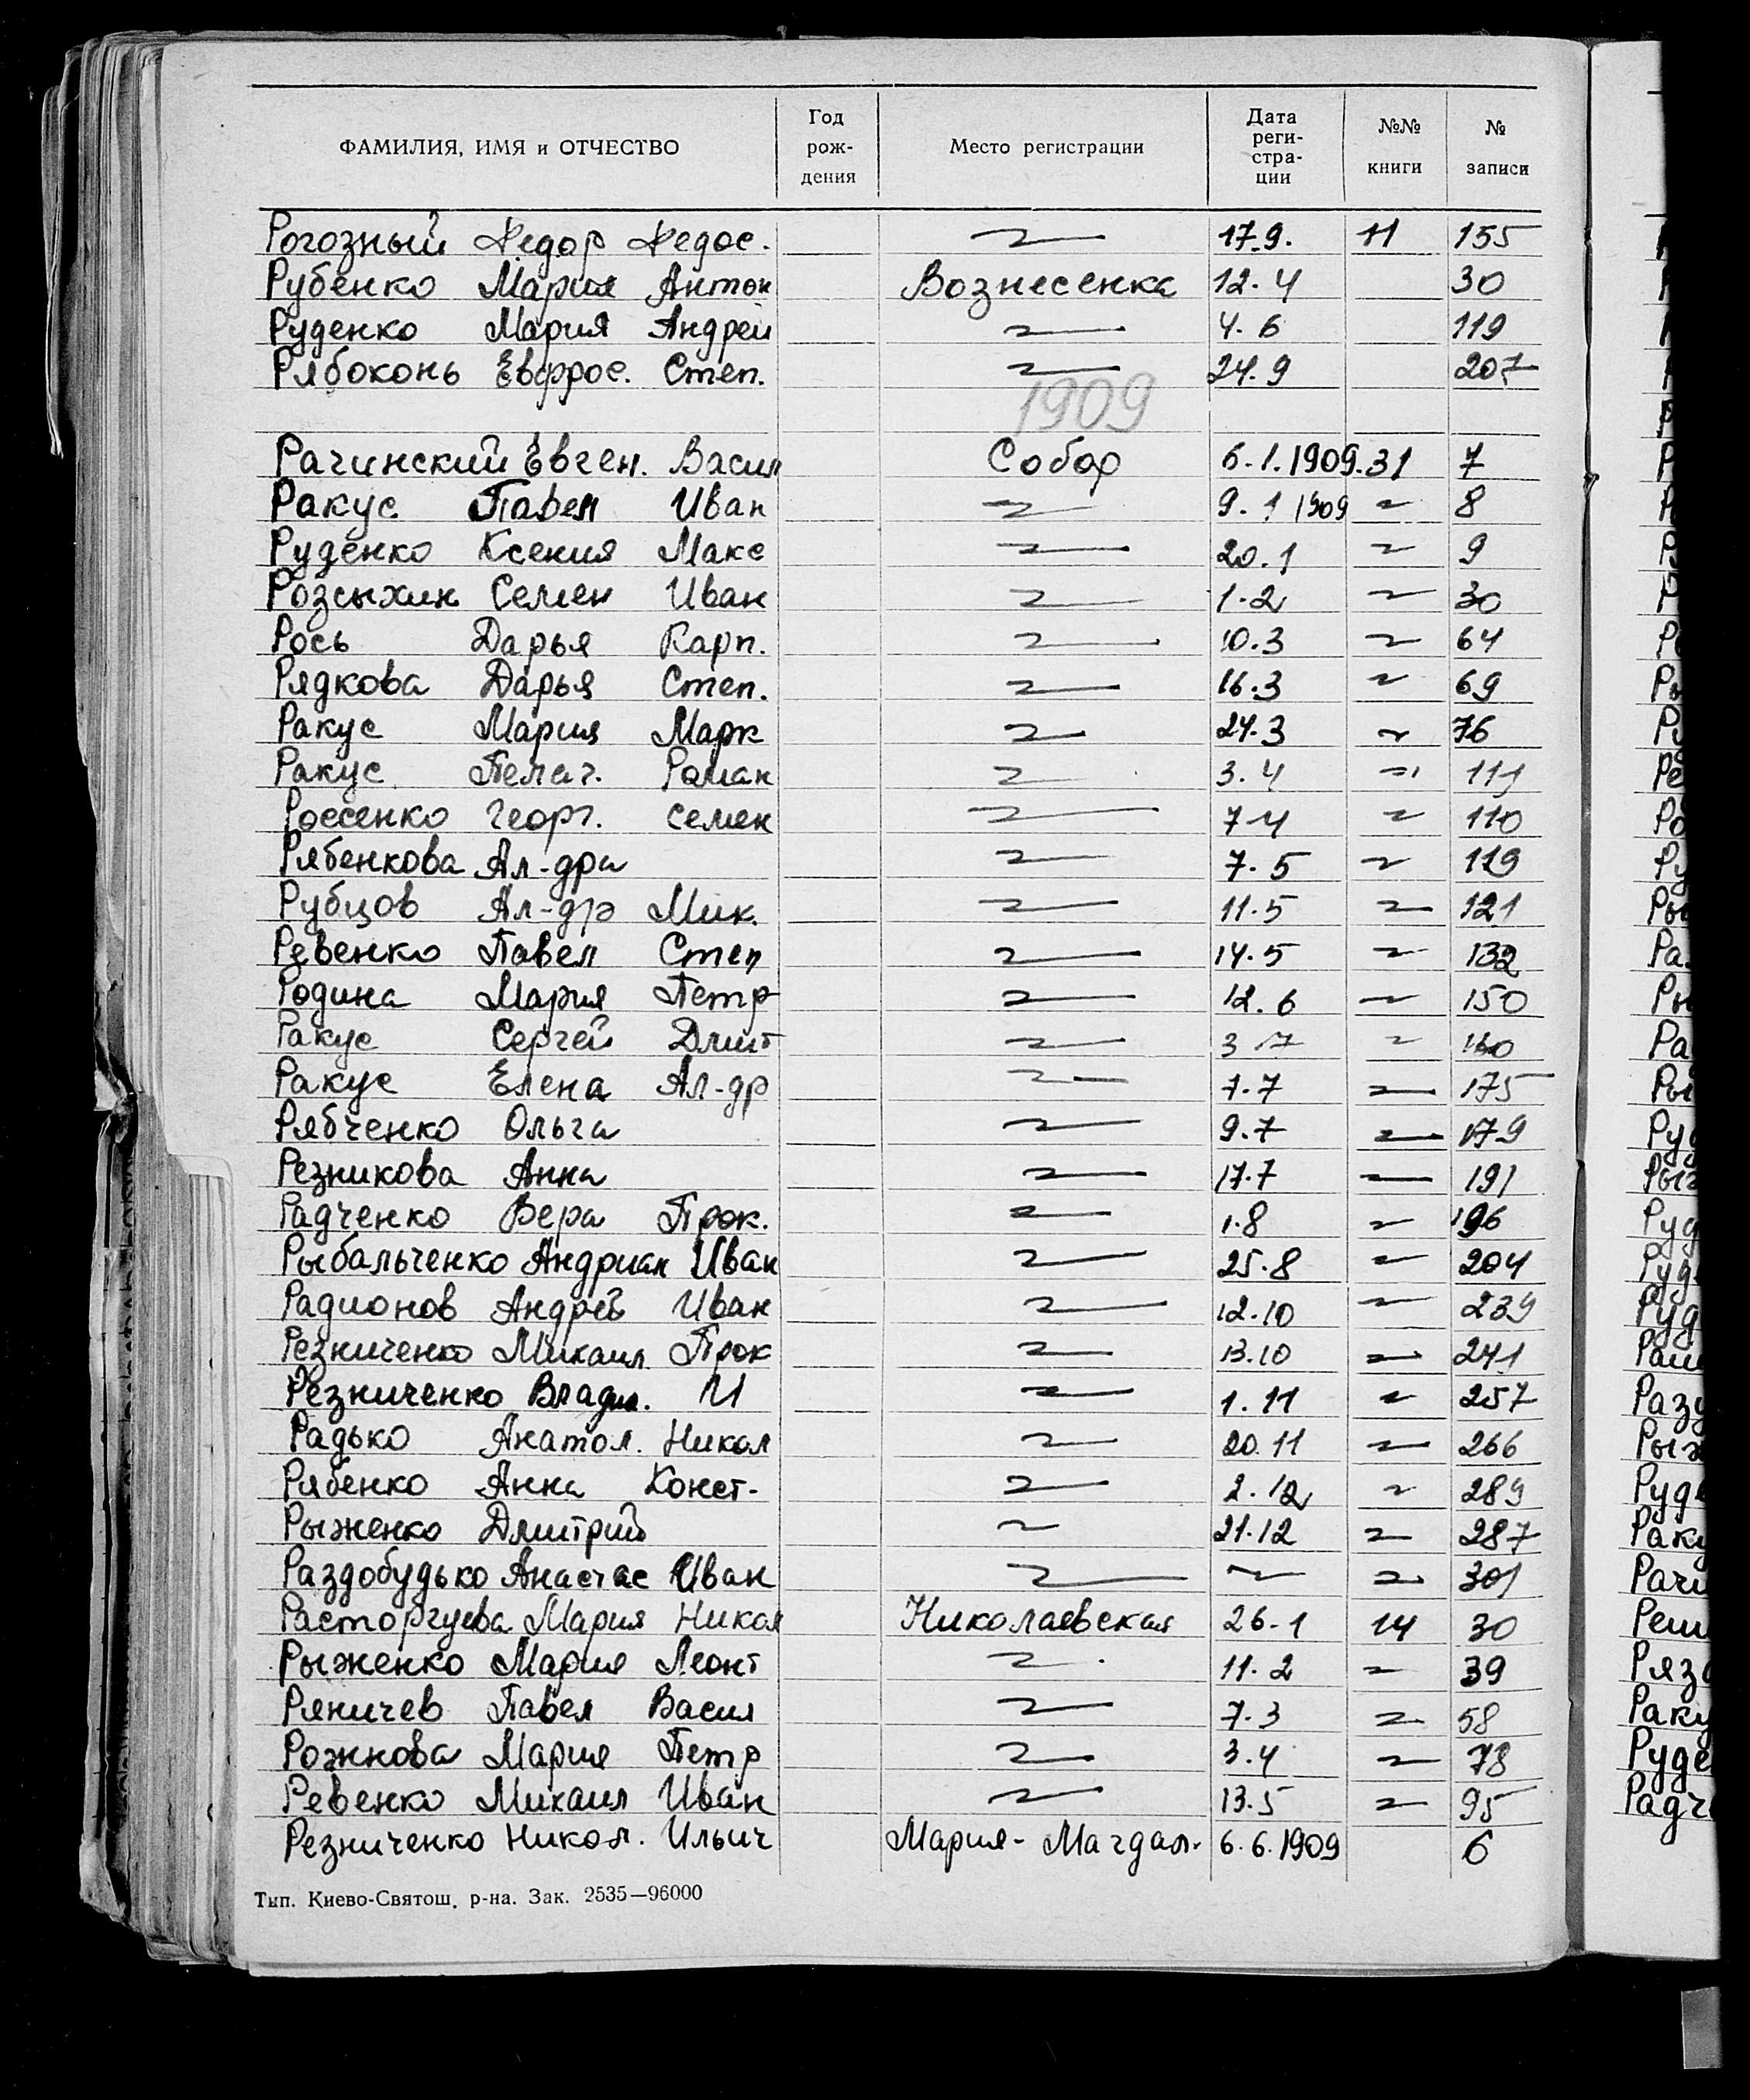 ФАМИЛИЯ, ИМЯ и ОТЧЕСТВО Год рож- дения Место регистрации Дата реги- стра- ции №№ книги № записи
Рогозный Федор Федос. 17.9. 11 155
Рубенко Мария Антон Вознесенка 12.4 30
Руденко Мария Андрей 4.6 119
Рябоконь Евфрос. Степ. 24.9 207
1909
Рачинский Евген. Васил Собор 6.1.1909. 31 7
Ракус Павел Иван 9.1 1909 8
Руденко Ксения Макс 20.1 9
Розсыхин Семен Иван 1.2 30
Рось Дарья Карп. 10.3 64
Рядкова Дарья Степ. 16.3 69
Ракус Мария Марк 24.3 76
Ракус Пелаг. Роман 3.4 111
Россенко Георг. Семен 7.4 110
Рябенкова Ал-дра 7.5 119
Рубцов Ал-др Мик. 11.5 121
Ревенко Павел Степ 14.5 132
Родина Мария Петр 12.6 150
Ракус Сергей Дмит 3.7
Ракус Елена Ал-др 7.7 175
Рябченко Ольга 9.7 179
Резникова Анна 17.7 191
Радченко Вера Прок. 1.8 196
Рыбальченко Андриан Иван 25.8 204
Радионов Андрей Иван 12.10 239
Резниченко Михаил Прок 13.10 241
Резниченко Влади. И 1.11 257
Радько Анатол. Никол 20.11 266
Рябенко Анна Конст. 2.12 289
Рыженко Дмитрий 21.12 287
Раздобудько Анастас Иван 301
Расторгуева Мария Никол Николаевская 26.1 14 30
Рыженко Мария Леонт 11.2 39
Ряничев Павел Васил 7.3 58
Рожнова Мария Петр 3.4 78
Ревенко Михаил Иван 13.5 95
Резниченко Никол. Ильич Мария- Магдал. 6.6.1909 6
Тип. Киево-Святош. р-на. Зак. 2535—96000